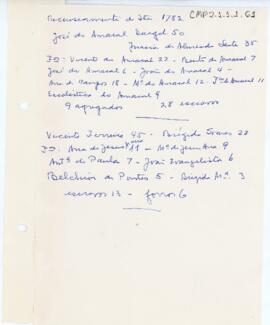 Recenseamento de Itu 1/82 CMP2.1.1.1.61
José do Amaral Gurgel 50
Ignacia de Almeida Leite 35
Fº: Vicente do Amaral 22 - Bento do Amaral 7
José do Amaral 6 - João do Amaral 4 -
Ana de Campos 18 - Mª do Amaral 12 - do Amaral 11
Escolástica do Amaral 9
9 agregados 28 escravos
Vicente Ferreira 45 - Brígida Soares 28
Fº: Ana de Jesus Maria 11 - Mª de Jesus Ana 9
Antº de Paula 7 - João Evangelista 6
Belchior de Pontes 5 - Brígida Mª. 3
escravos 13 - forros 6